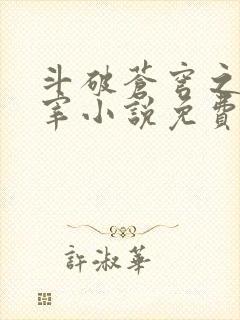 斗破蒼穹之
宰小說免費
許淑華